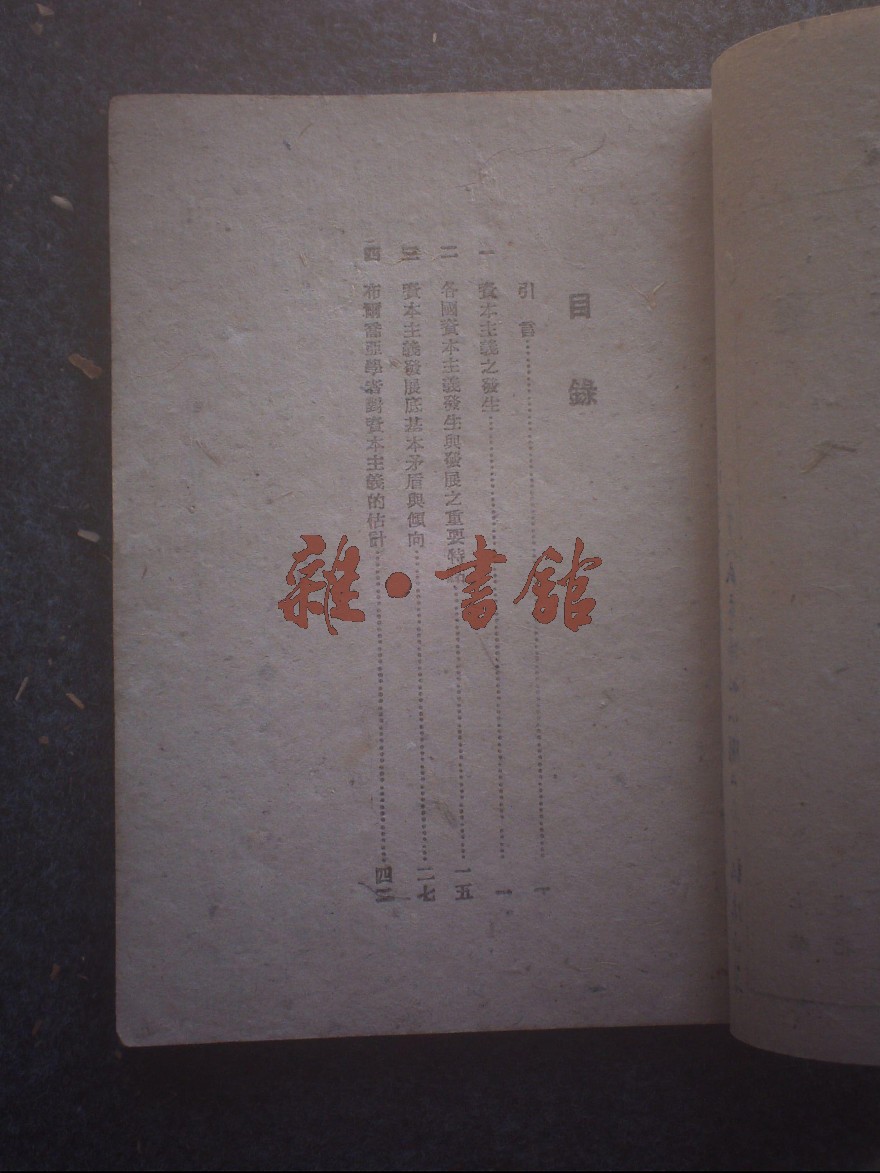 目錄
引言
一 資本主義之發生
二 各國資本主義發生與發展之重要特
三 資本主義發展底基本矛盾與傾向
四 布爾喬亞學者對資本主義的估計
一
一五
四三
雜·書館